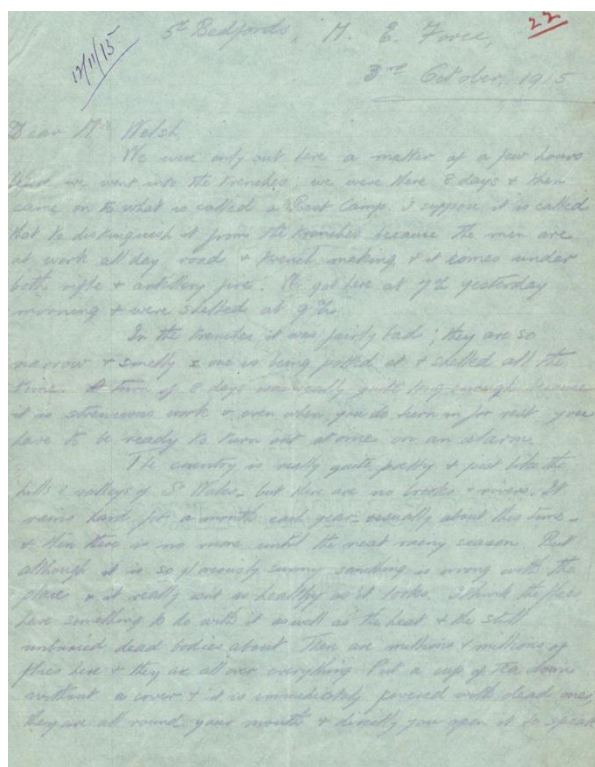 22
12/11/15
5th Bedfords, M. E. Force,
3rd October, 1915
Dear Mr Welsh,
We were only out here a matter of a few hours
we went into the trenches; we were there 8 days & then
came on to what is called a Rest Camp. I suppose it is called
that to distinguish it from the trenches because the men are
at work all day road & trench making & it comes under
both rifle & artillery fire. We got here at 7 yesterday
morning & were shelled at 9
In the trenches it was fairly bad; they are so
narrow & smelly & one is being potted at & shelled all the
time. A turn of 8 days was really quite long enough because
it is strenuous work & even when you do turn in for rest you
have to be ready to turn out at once on an alarm.
The country is really quite pretty & just like the
hills & valleys of S. Wales - but there are no brooks & rivers. It
rains hard for a month each year - usually about this time -
& then there is no more until the next rainy season. But
although it is so gloriously sunny something is wrong with the
place & it really isn't as healthy as it looks. I think the flies
have something to do with it as well as the heat & the still
unburied dead bodies about. There are millions & millions of
flies here & they are all over everything. Put a cup of tea down
without a cover & it is immediately covered with dead ones,
they are all round your mouth & directly you open it to speak